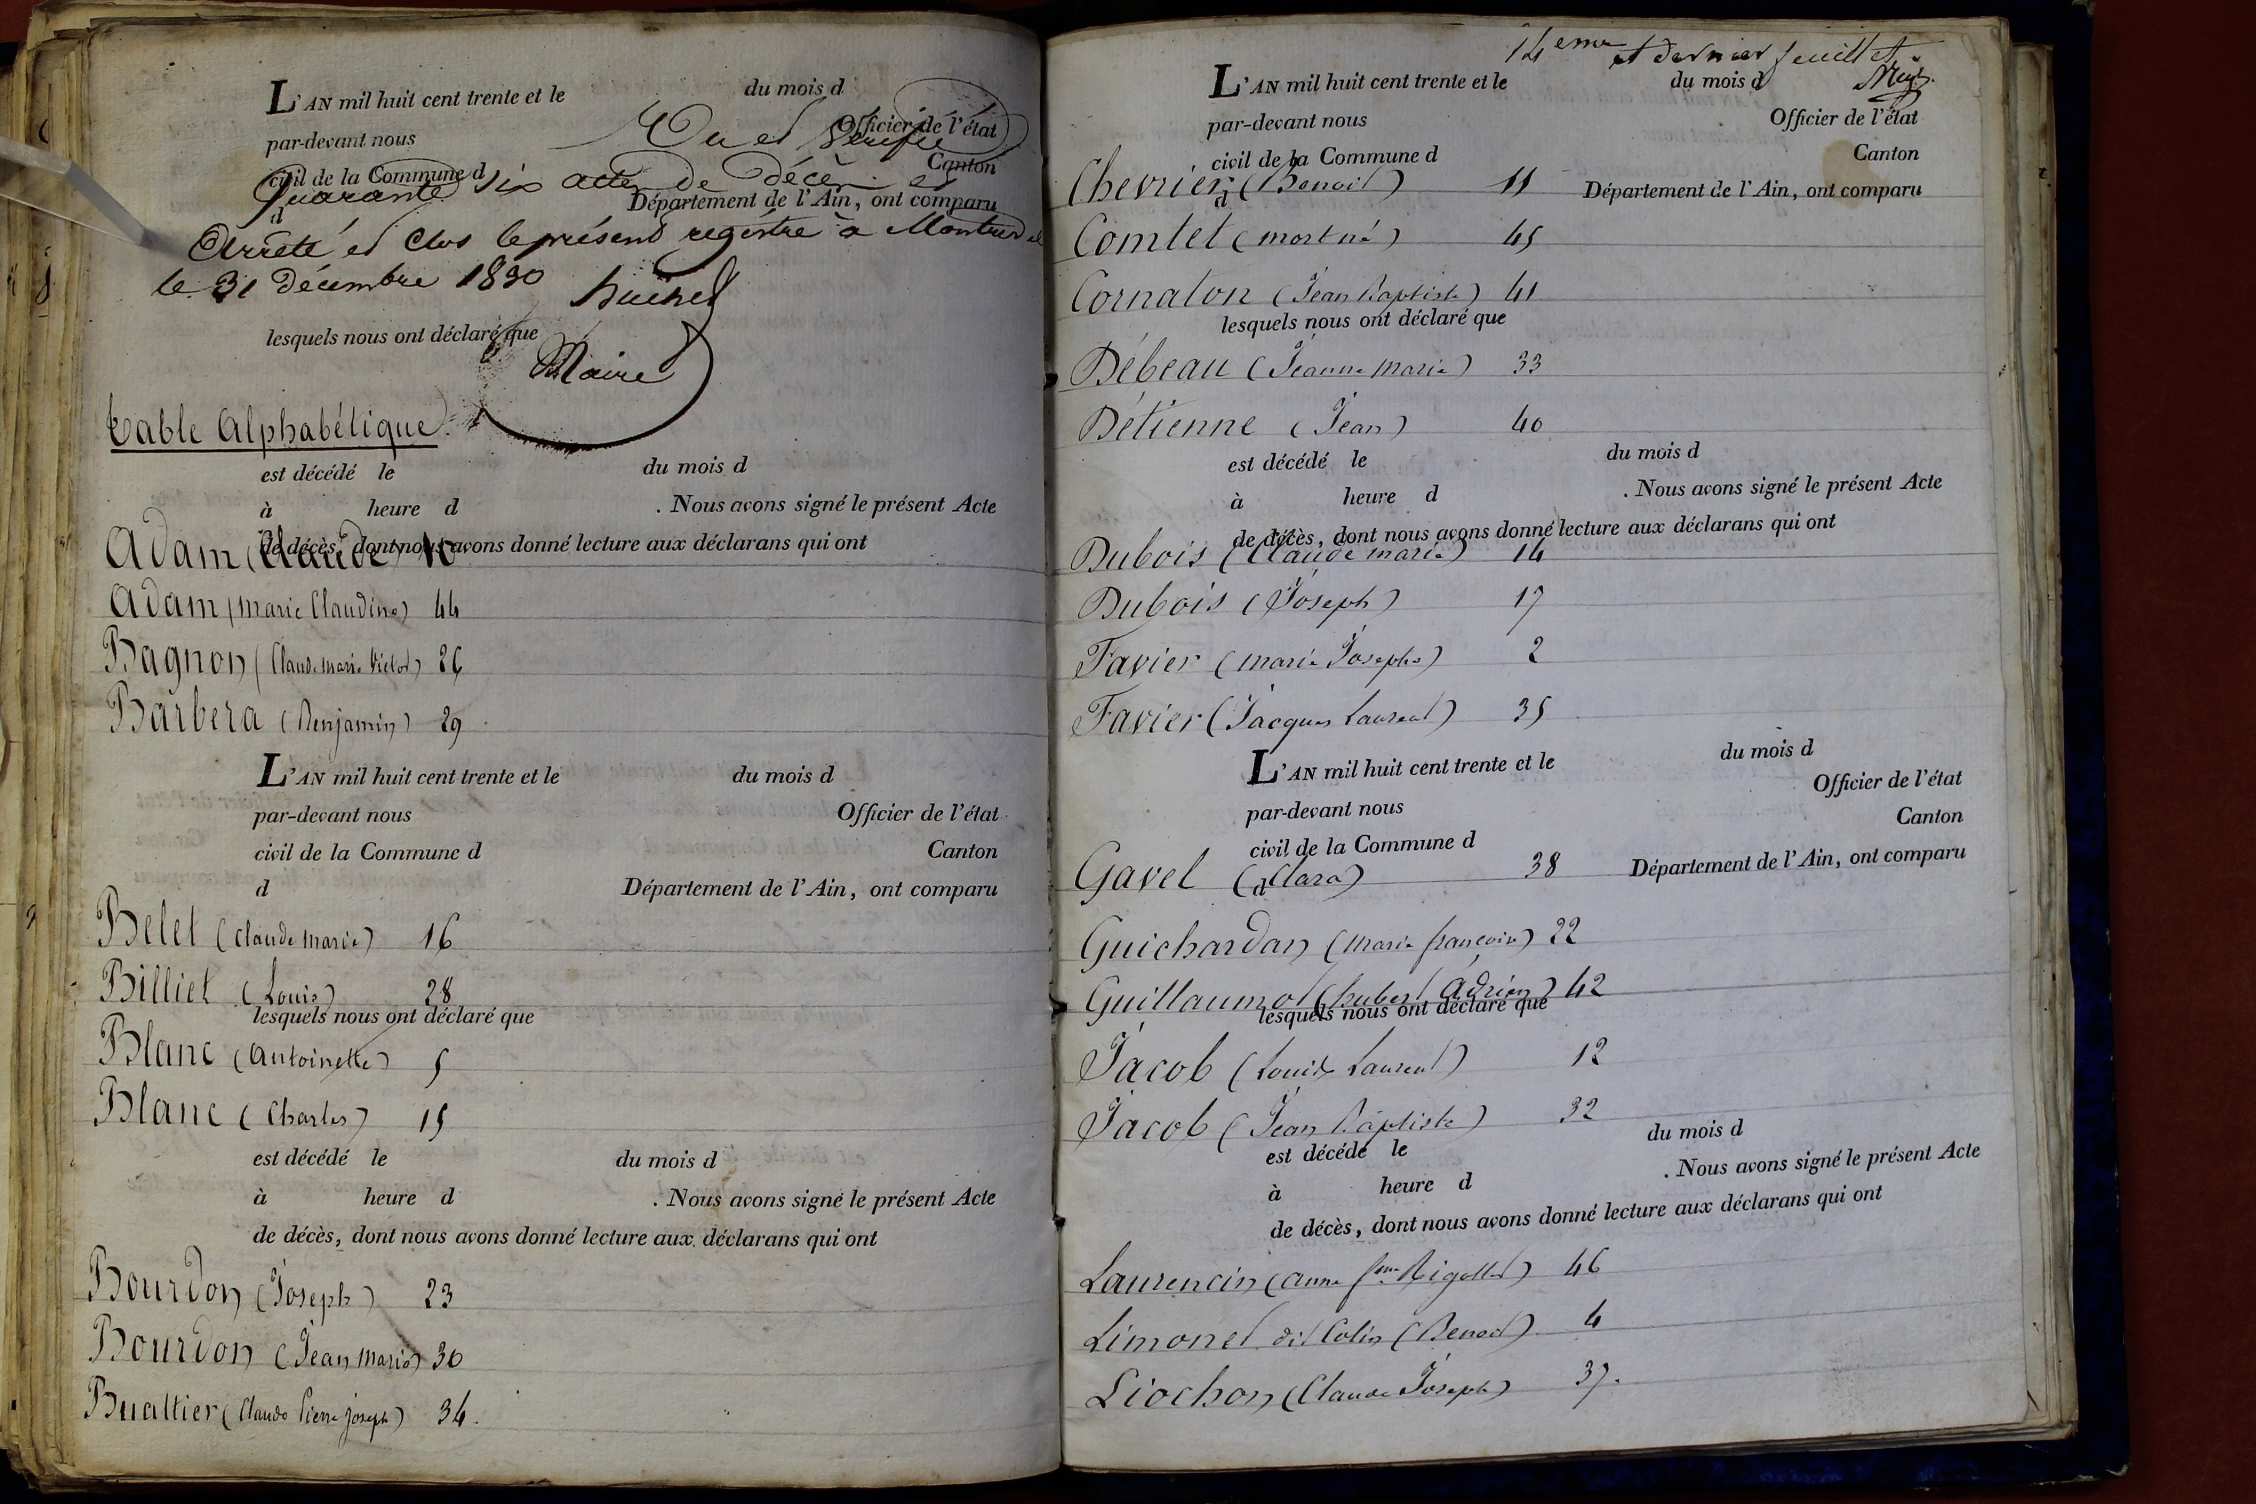 L'AN mil huit cent trente et le du mois d
par-devant nous Officier de l'état
Vu et Vérifié
civil de la Commune d Canton
Quarante six actes de Décès et
d Département de l'Ain, ont comparu
Arrêté et Clos le présent registre à
le 31 Décembre 1830
lesquels nous ont déclaré que
Maire
Table Alphabétique.
est décédé le du mois d
à heure d . Nous avons signé le présent Acte
de décès, dont nous avons donné lecture aux déclarans qui ont
Adam (Claude) 10
Adam (marie Claudine) 44
Bagnon (Claude marie Victor) 26
Barbera (Benjamin) 29
L'AN mil huit cent trente et le du mois d
par-devant nous Officier de l'état
civil de la Commune d Canton
d Département de l'Ain, ont comparu
Belet (claude marie) 16
Billiet (Louis) 28
lesquels nous ont déclaré que
Blanc (antoinette) 5
Blanc (Charles) 15
est décédé le du mois d
à heure d . Nous avons signé le présent Acte
de décès, dont nous avons donné lecture aux déclarans qui ont
Bourdon (Joseph) 23
Bourdon (Jean marie) 30
Buattier (Claude Pierre joseph) 34.
14eme et dernier feuillet
L'AN mil huit cent trente et le du mois d
par-devant nous Officier de l'état
civil de la Commune d Canton
Chevrier (Benoit) 11
d Département de l'Ain, ont comparu
Comtet (mort né) 45
Cornaton (Jean Baptiste) 41
lesquels nous ont déclaré que
Débeau (Jeanne marie) 33
Détienne (Jean) 40
est décédé le du mois d
à heure d . Nous avons signé le présent Acte
de décès, dont nous avons donné lecture aux déclarans qui ont
Dubois (Claude marie) 14
Dubois (Joseph) 17
Favier (marie Josephe) 2
Favier (Jacques Laurent) 35
L'AN mil huit cent trente et le du mois d
par-devant nous Officier de l'état
civil de la Commune d Canton
d Département de l'Ain, ont comparu
Gavel (Clara) 38
Guichardan (marie françoise) 22
Guillaumot (hubert Adrien) 42
lesquels nous ont déclaré que
Jacob (Louis Laurent) 12
Jacob (Jean Baptiste) 32
est décédé le du mois d
à heure d . Nous avons signé le présent Acte
de décès, dont nous avons donné lecture aux déclarans qui ont
Laurencin (anne feme Rigollet) 46
Limonet dit Colin (Benoit) 4
Liochon (Claude Joseph) 37.